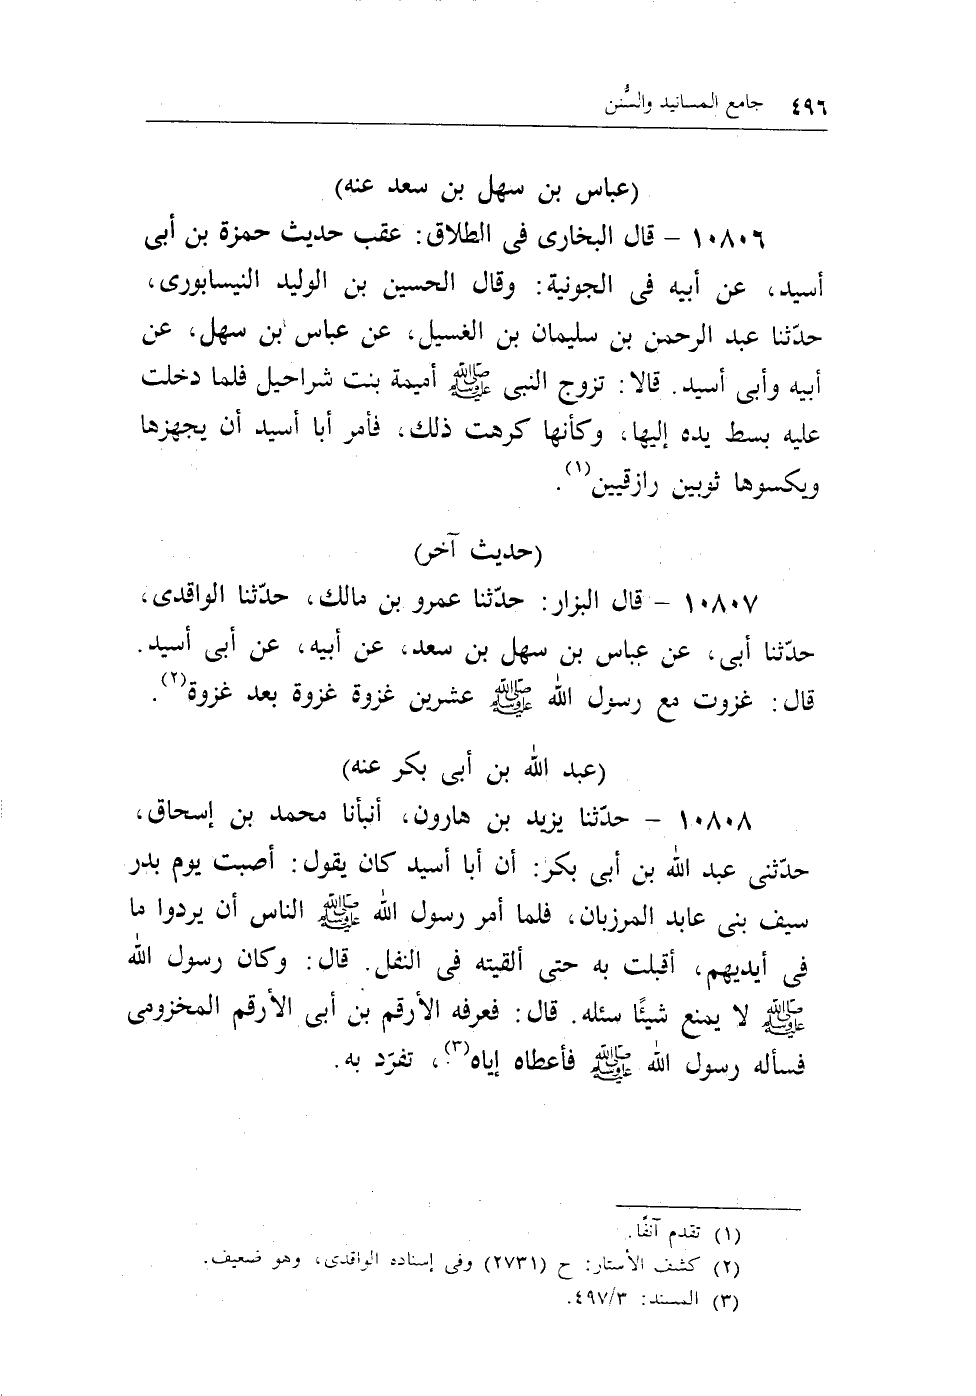 ٤٩٦ جامع المسانيد والسُّنن
(عباس بن سهل بن سعد عنه)
١٠٨٠٦ – قال البخارى فى الطلاق: عقب حديث حمزة بن أبى
أسيد، عن أبيه فى الجونية: وقال الحسين بن الوليد النيسابورى،
حدّثنا عبد الرحمن بن سليمان بن الغسيل، عن عباس بن سهل، عن
أبيه وأبى أسيد. قالا: تزوج النبى ﷺ أميمة بنت شراحيل فلما دخلت
عليه بسط يده إليها، وكأنها كرهت ذلك، فأمر أبا أسيد أن يجهزها
ويكسوها ثوبين رازقيين(١).
(حديث آخر)
١٠٨٠٧ – قال البزار: حدّثنا عمرو بن مالك، حدّثنا الواقدى،
حدّثنا أبى، عن عباس بن سهل بن سعد، عن أبيه، عن أبى أسيد.
قال: غزوت مع رسول الله ﷺ عشرين غزوة غزوة بعد غزوة(٢).
(عبد الله بن أبى بكر عنه)
١٠٨٠٨ – حدّثنا يزيد بن هارون، أنبأنا محمد بن إسحاق،
حدّثنى عبد الله بن أبى بكر: أن أبا أسيد كان يقول: أصبت يوم بدر
سيف بنى عابد المرزبان، فلما أمر رسول الله ﷺ الناس أن يردوا ما
فى أيديهم، أقبلت به حتى ألقيته فى النفل. قال: وكان رسول الله
ﷺ لا يمنع شيئًا سئله. قال: فعرفه الأرقم بن أبى الأرقم المخزومى
فسأله رسول الله ﷺ فأعطاه إياه(٣)، تفرّد به.
(١) تقدم آنفًا.
(٢) كشف الأستار: ح (٢٧٣١) وفى إسناده الواقدى، وهو ضعيف.
(٣) المسند: ٤٩٧/٣.